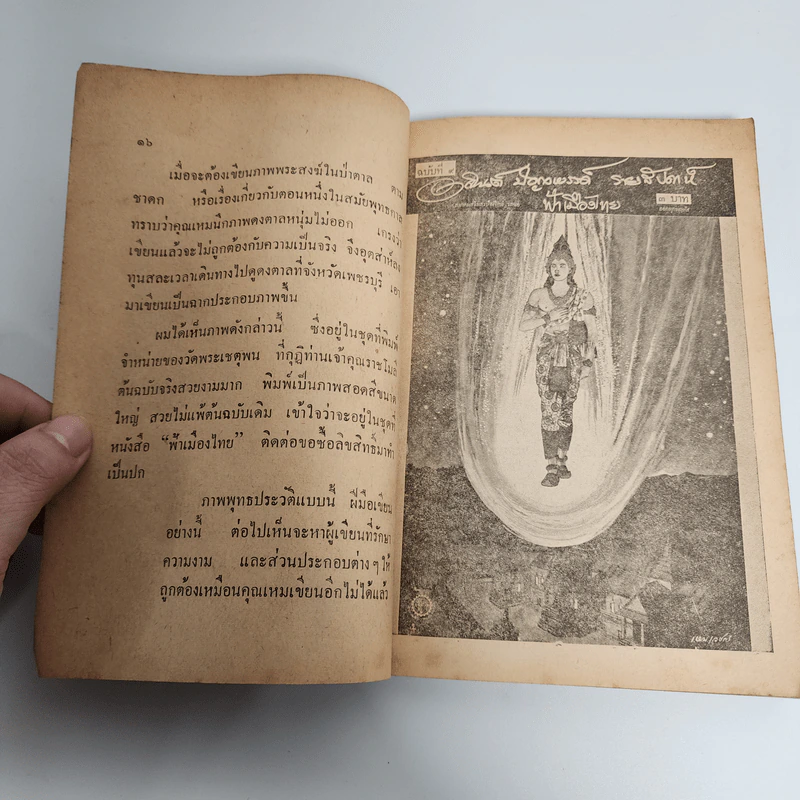 ๑๖
เมื่อจะต้องเขียนภาพพระสงฆ์ในป่าตาล ตาม
ชาดก หรือเรื่องเกี่ยวกับตอนหนึ่งในสมัยพุทธกาล
ทราบว่าคุณเหมนึกภาพดงตาลหนุ่มไม่ออก เกรงว่า
เขียนแล้วจะไม่ถูกต้องกับความเป็นจริง จึงอุตส่าห์ลง
ทุนสละเวลาเดินทางไปดูดงตาลที่จังหวัดเพชรบุรี เอา
มาเขียนเป็นฉากประกอบภาพขึ้น
ผมได้เห็นภาพดังกล่าวนี้ ซึ่งอยู่ในชุดที่พิมพ์
จำหน่ายของวัดพระเชตุพน ที่กุฏิท่านเจ้าคุณราชโมลี
ต้นฉบับจริงสวยงามมาก พิมพ์เป็นภาพสอดสีขนาด
ใหญ่ สวยไม่แพ้ต้นฉบับเดิม เข้าใจว่าจะอยู่ในชุดที่
หนังสือ “ฟ้าเมืองไทย” ติดต่อขอซื้อลิขสิทธิ์มาทำ
เป็นปก
ภาพพุทธประวัติแบบนี้ ฝีมือเขียน
อย่างนี้ ต่อไปเห็นจะหาผู้เขียนที่รักษา
ความงาม และส่วนประกอบต่าง ๆ ให้
ถูกต้องเหมือนคุณเหมเขียนอีกไม่ได้แล้ว
ฉบับที่ ๙
อาจินต์ ปัญจพรรค์ รายสัปดาห์
ฟ้าเมืองไทย
๓ บาท
เหม เวชกร